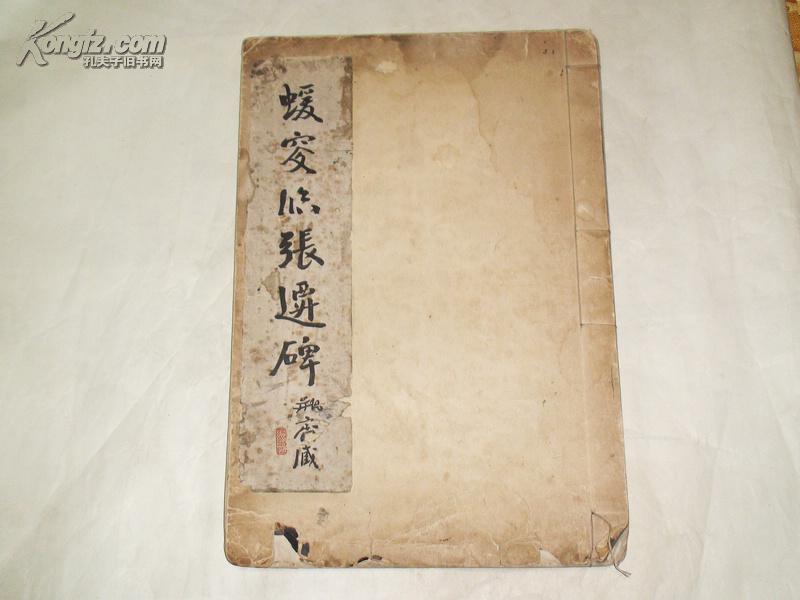 Kongfz.com
孔夫子旧书网
蝯叟临張遷碑
瓶庐藏